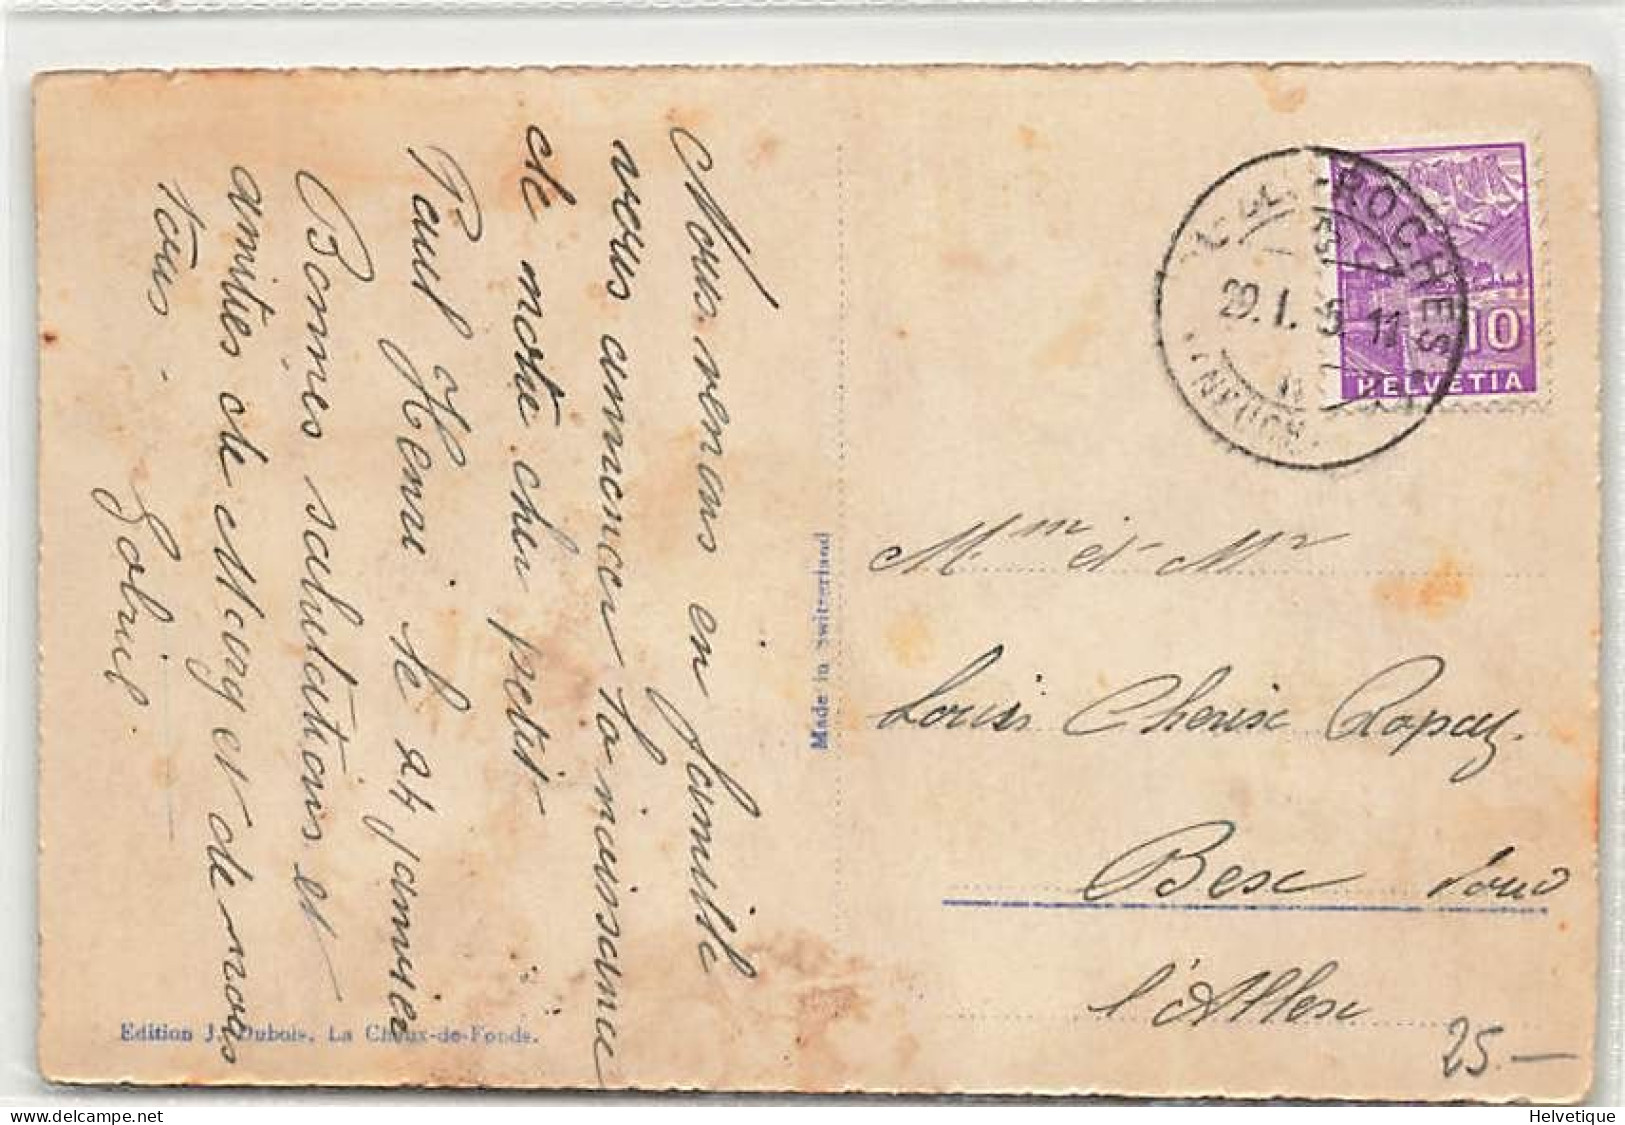 Nous venons en famille
vous annoncer la naissance
de notre cher petit
Paul Henri le 24 janvier
Bonnes salutations et
amitiés de Marg et de nous
tous.
Edition J. Dubois, La Chaux-de-Fonds.
Made in Switzerland
ROCHES
29. I. 3
HELVETIA
10
Mme et Mr
Louis Rapaz
Bex
l'Allex
25.—
delcampe.net
Helvetique